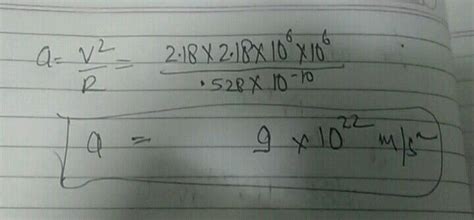 a = V²/R = 2.18 × 2.18 × 10⁶ × 10⁶ / .528 × 10⁻¹⁰
a = 9 × 10²² m/s²